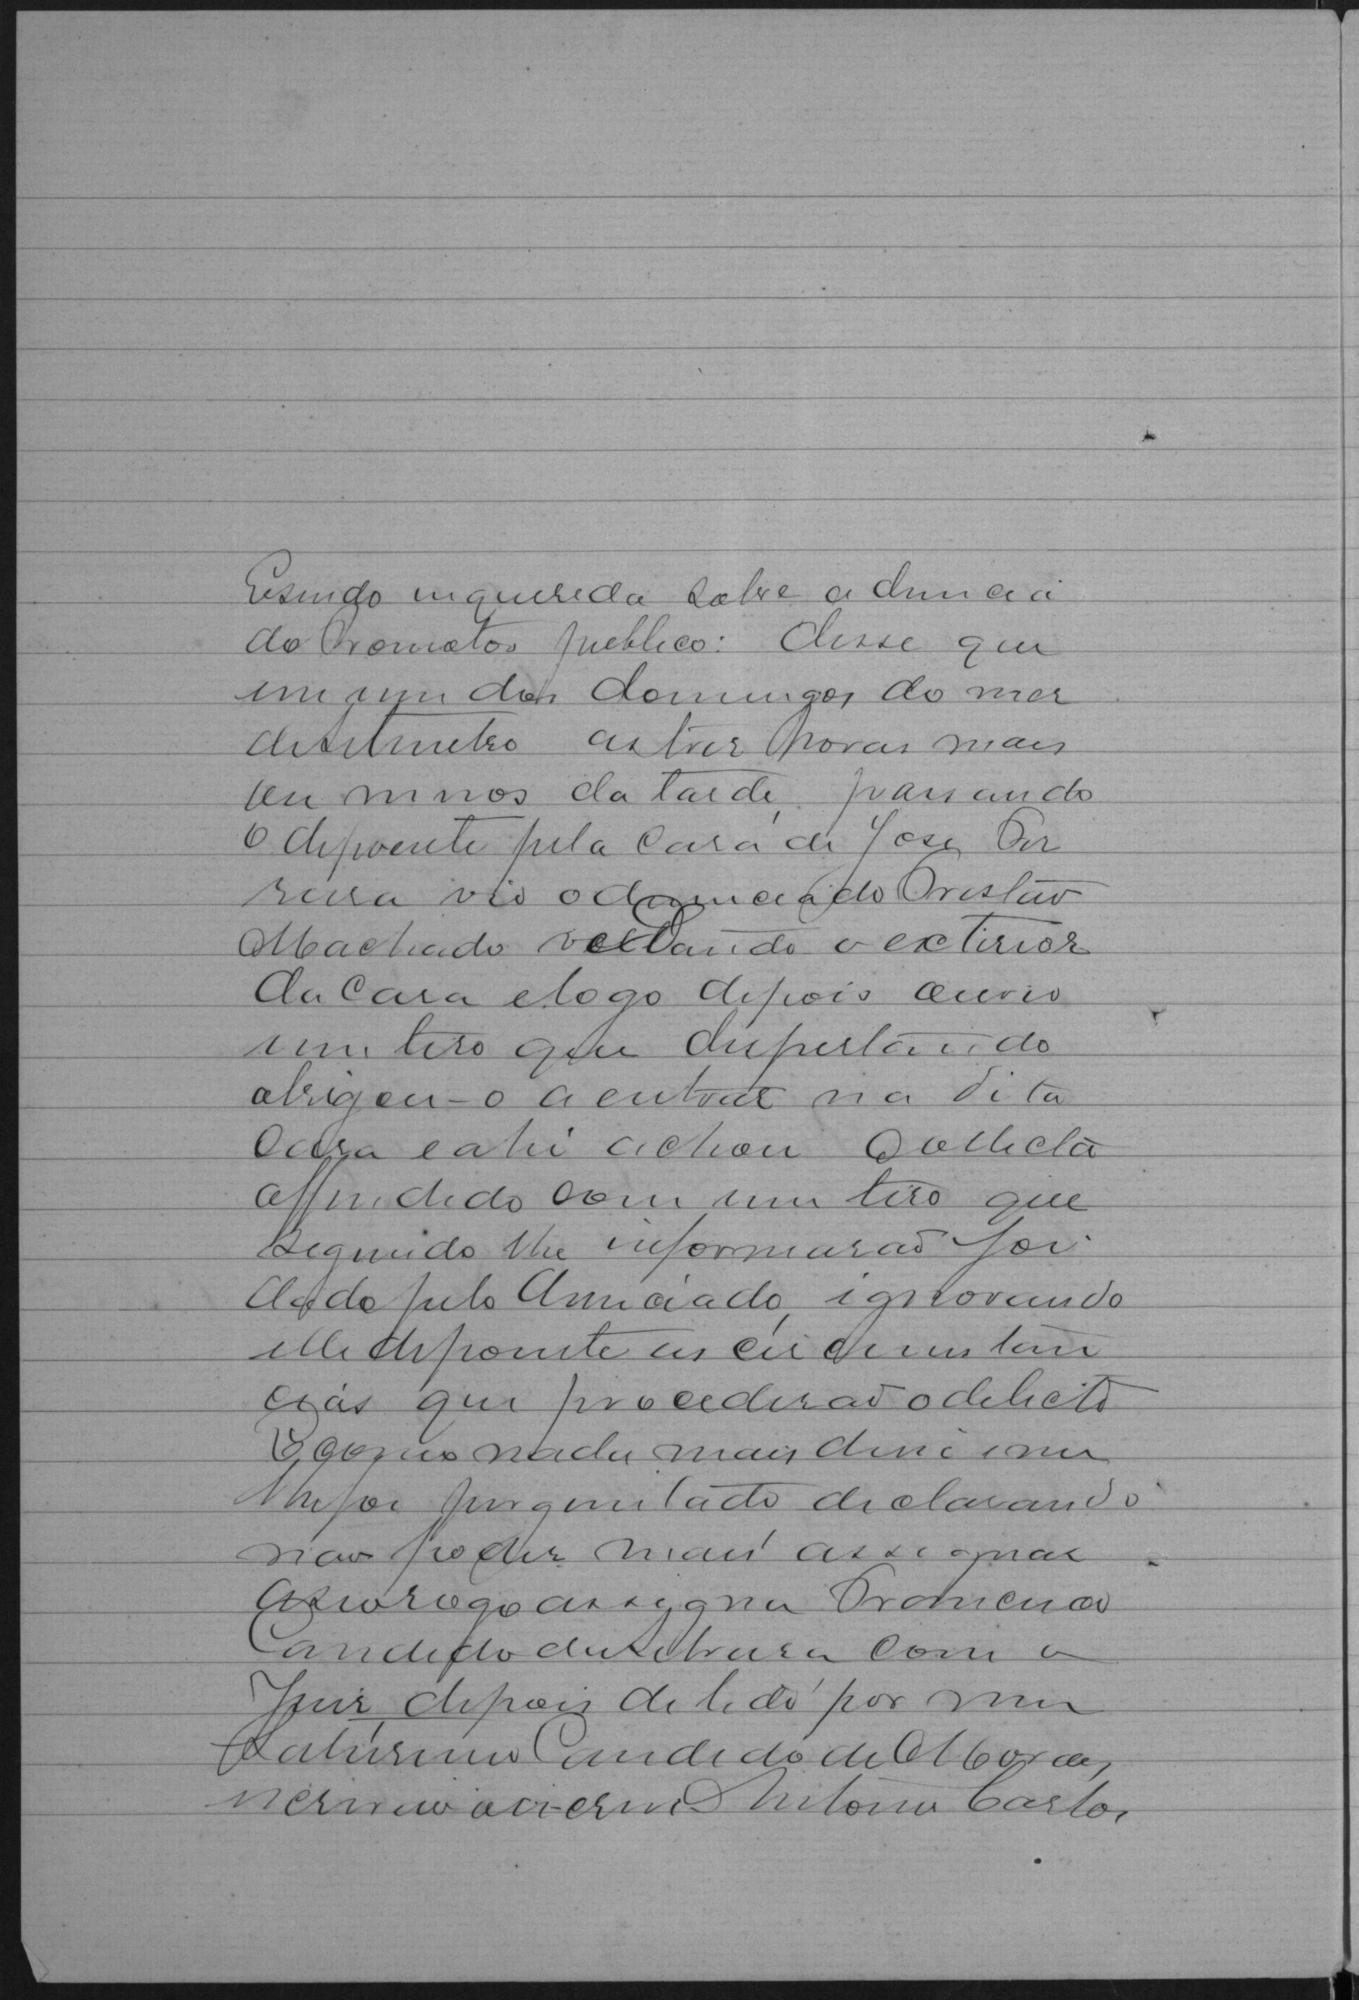 Esendo inquerida sobre a dinucia
do Promotor publico: disse que
em um dos domingos do mes
de setembro as tres horas mais
ou menos da tarde, passando
o depoente pela casa de Jose Per
reira vio o denunciado Tristão
Machado o exterior
da casa e logo depois ouvio
um tiro que dispertando
obrigou-o a entrar na dita
casa e ahi achou Collecta
offendido com um tiro que
segundo lhe informarão foi
dado pelo denunciado, ignorando
elle depoente as circumstan
cias que procederão o delicto
E como nada mais disse nem
lhe foi perguntado declarando
não poder mais assignar
a seu rogo assigna Francisco
Candido da Silveira com o
Juiz depois de lido por mim
Saturnino Candido de Moraes
escrivão o escrevi Antonio Carlos